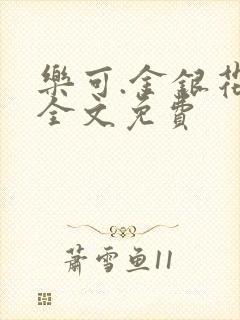 樂可.金銀花
全文免費
蕭雪魚11